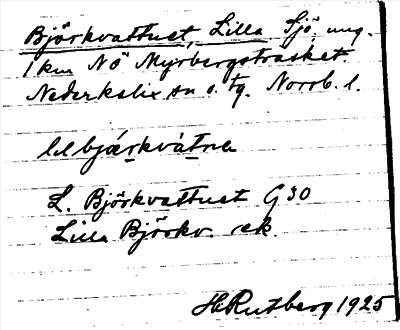 Björkvattnet, Lilla Sjö ung.
1 km NÖ Myrbergsträsket.
Nederkalix sn o. tg. Norrb. l.
L. Björkvattnet G30
Lilla Björkv. ek.
H Rutberg 1925